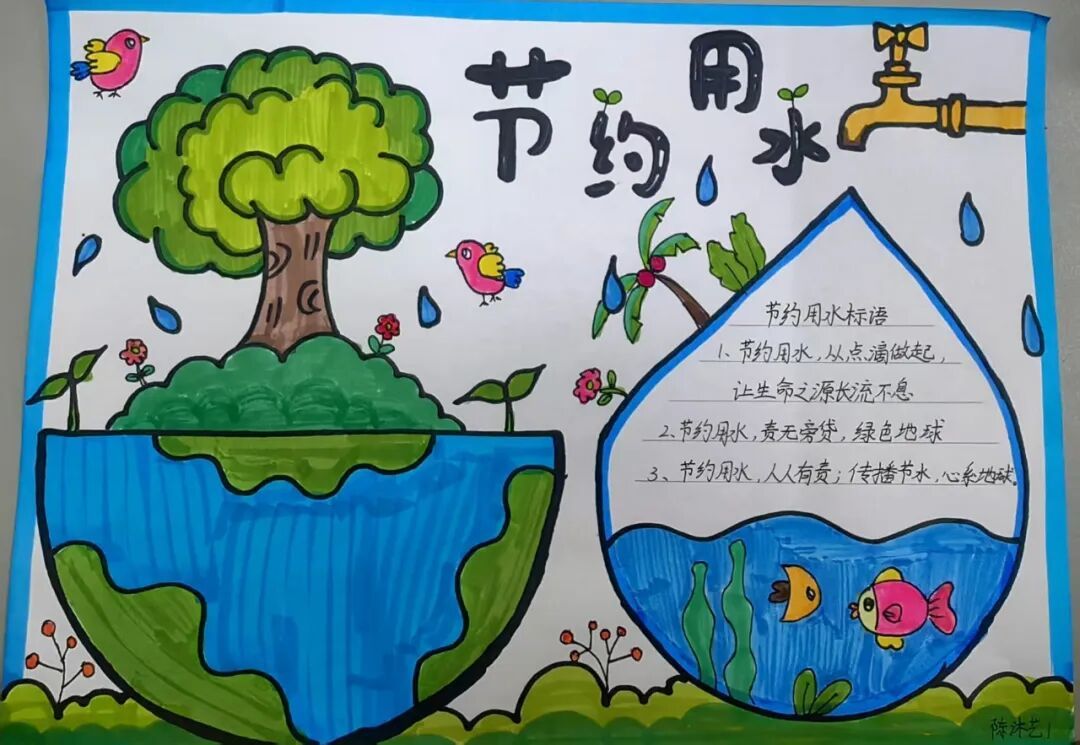 节约用水
节约用水标语
1、节约用水，从点滴做起，
让生命之源长流不息
2、节约用水，责无旁贷，绿色地球
3、节约用水，人人有责；传播节水，心系地球。
陈沐艺